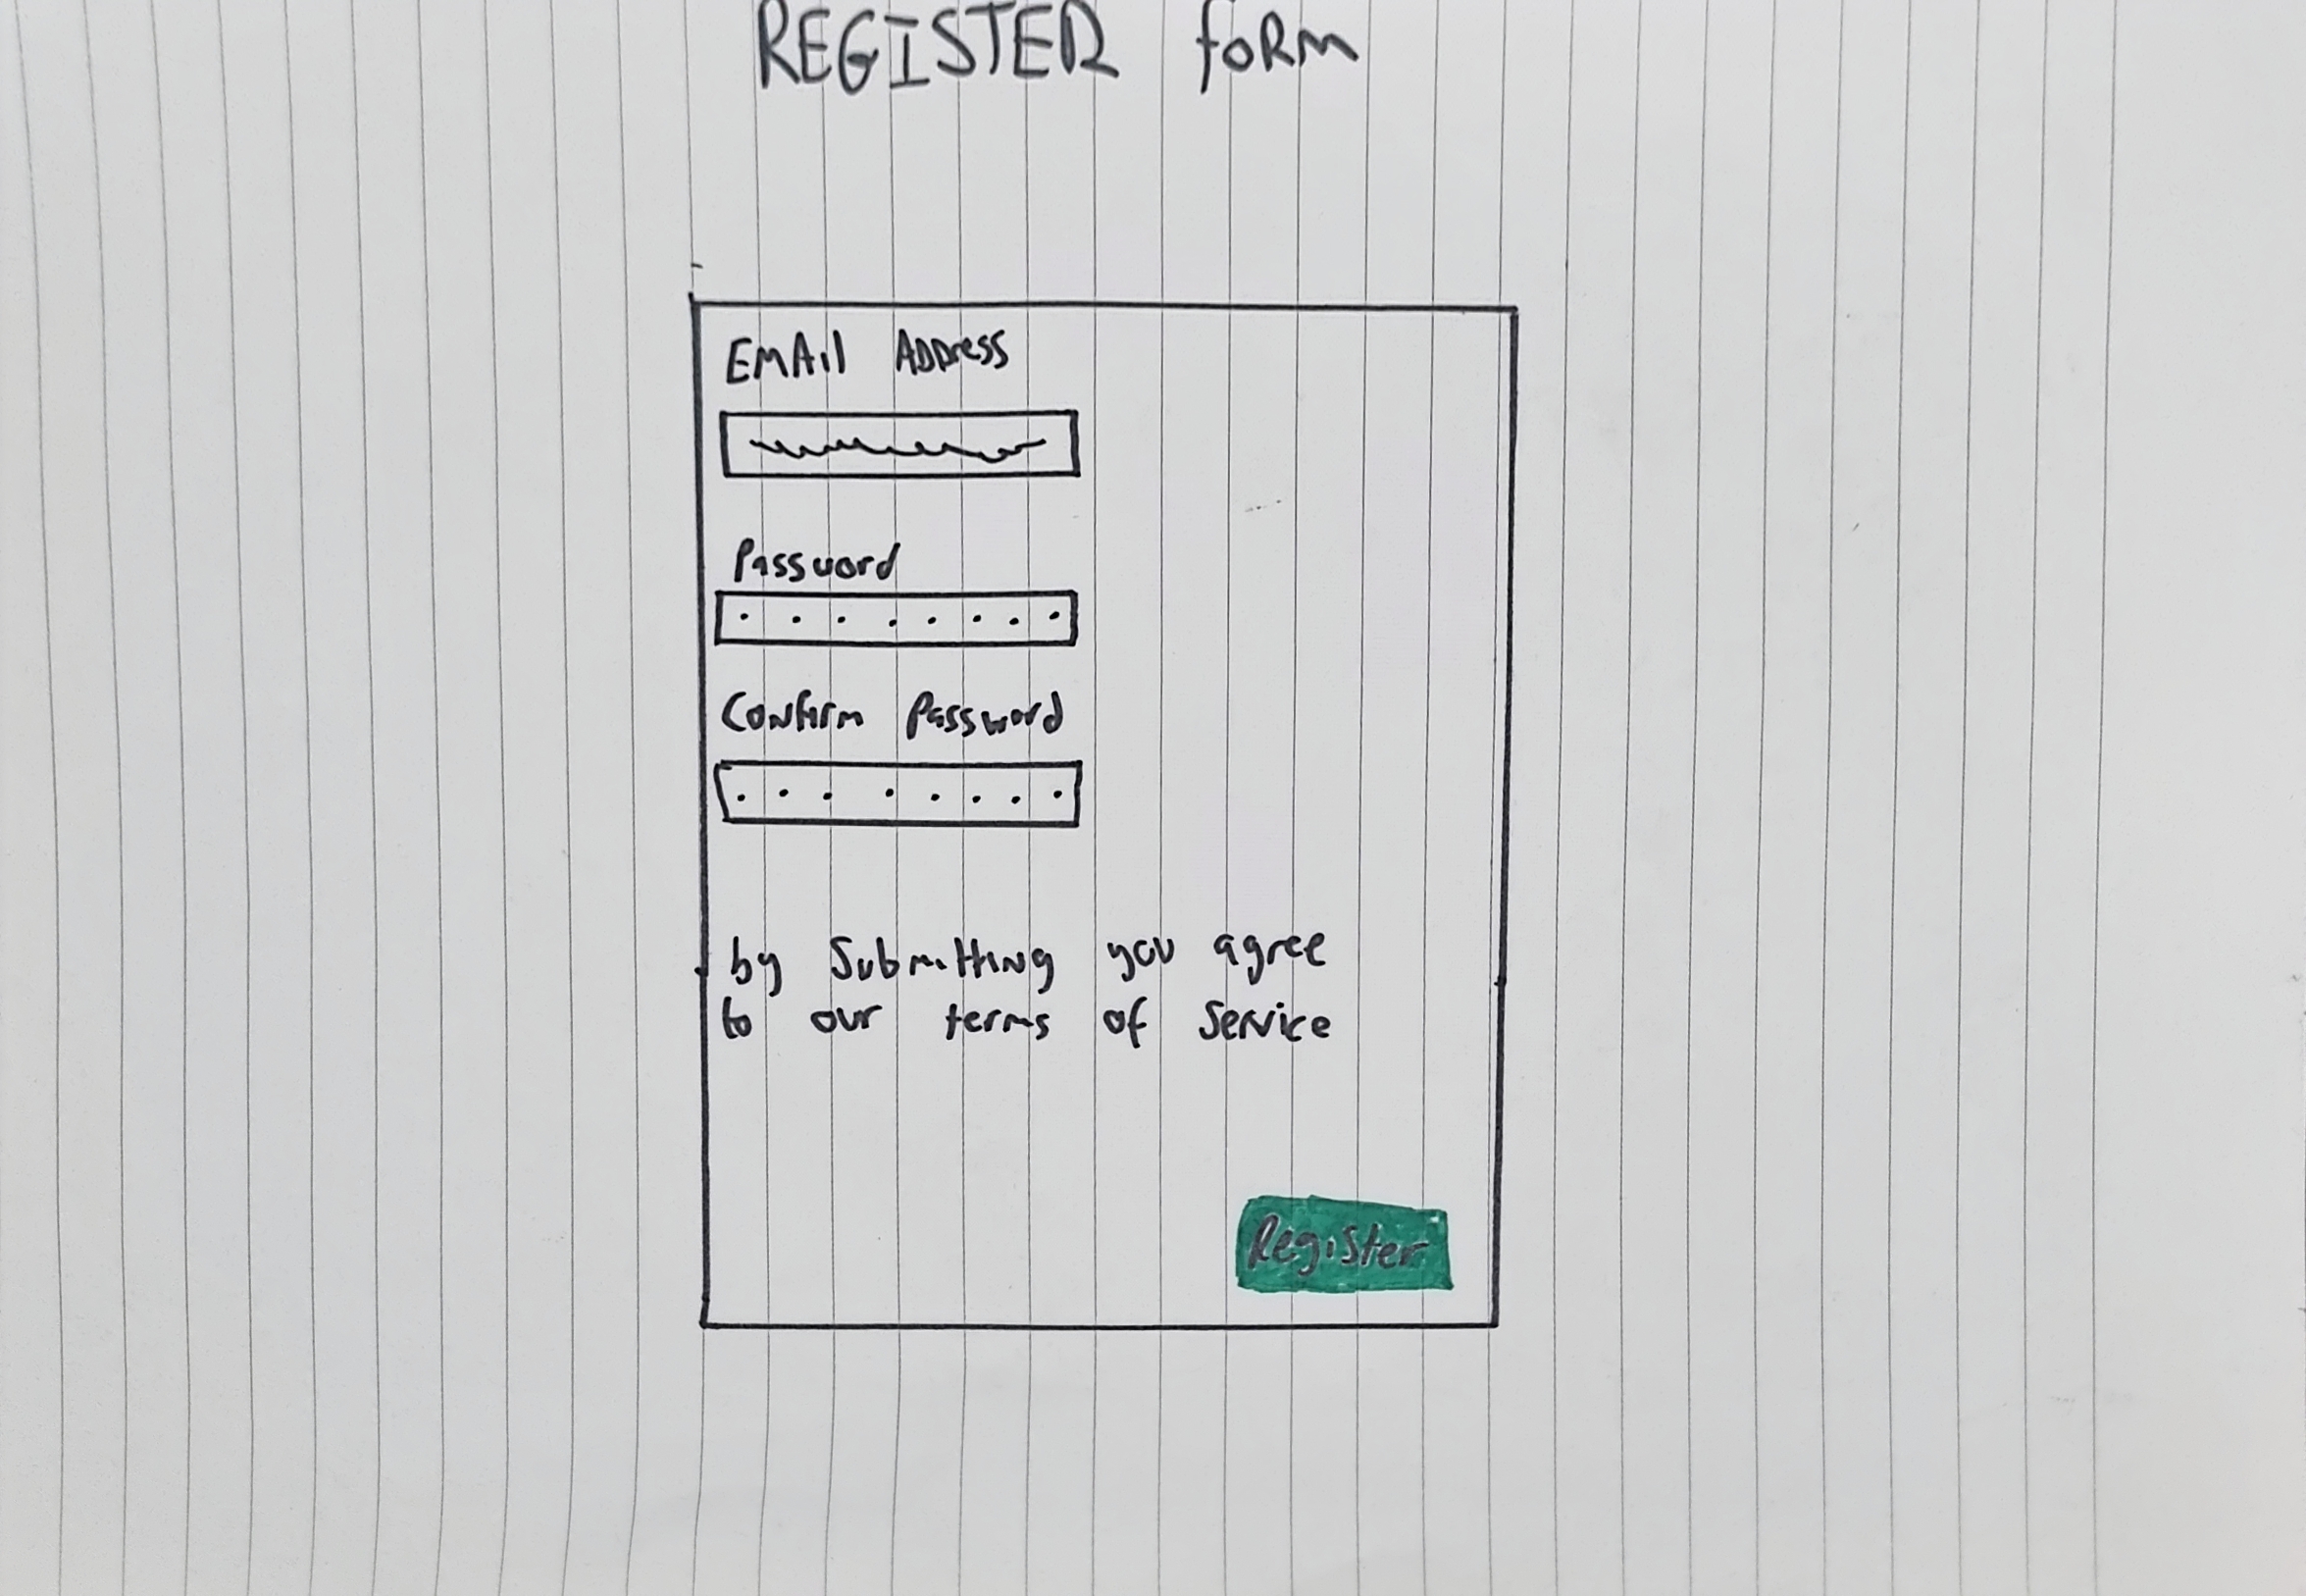 REGISTER foRm
EMAil ADDress
Password
Confirm Password
by Submitting you agree
to our terms of Service
Register